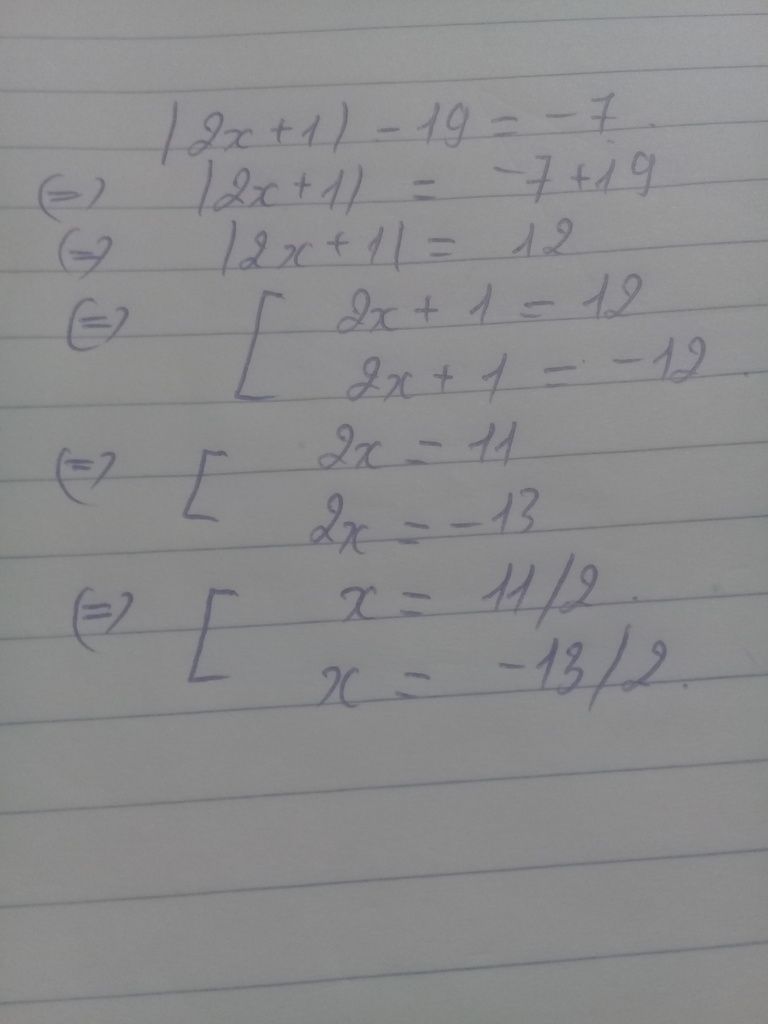 |2x+1| - 19 = -7
(=) |2x+1| = -7+19
(=) |2x+1| = 12
(=) [ 2x + 1 = 12
2x + 1 = -12
(=) [ 2x = 11
2x = -13
(=) [ x = 11/2.
x = -13/2.